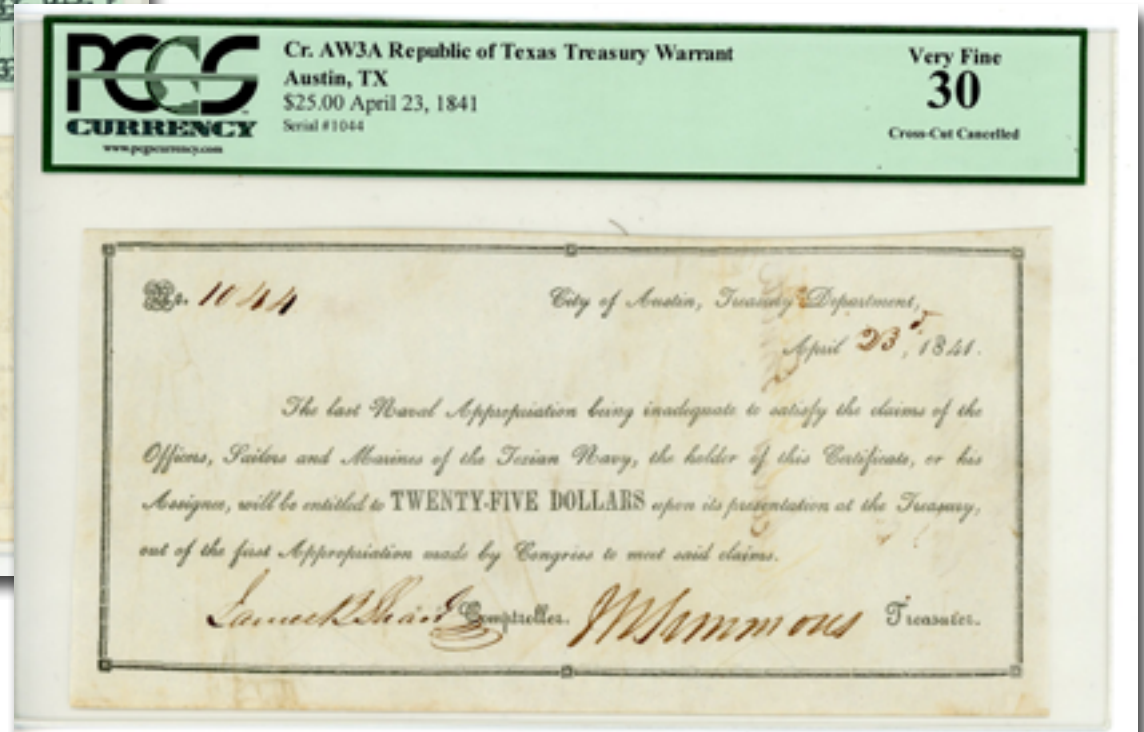 PCGS
CURRENCY
www.pcgscurrency.com
Cr. AW3A Republic of Texas Treasury Warrant
Austin, TX
$25.00 April 23, 1841
Serial #1044
Very Fine
30
Cross-Cut Cancelled
No. 1044
City of Austin, Treasury Department,
April 23, 1841.
The last Naval Appropriation being inadequate to satisfy the claims of the
Officers, Sailors and Marines of the Texian Navy, the holder of this Certificate, or his
Assignee, will be entitled to TWENTY-FIVE DOLLARS upon its presentation at the Treasury,
out of the first Appropriation made by Congress to meet said claims.
James B Shaw Comptroller. Simmons Treasurer.